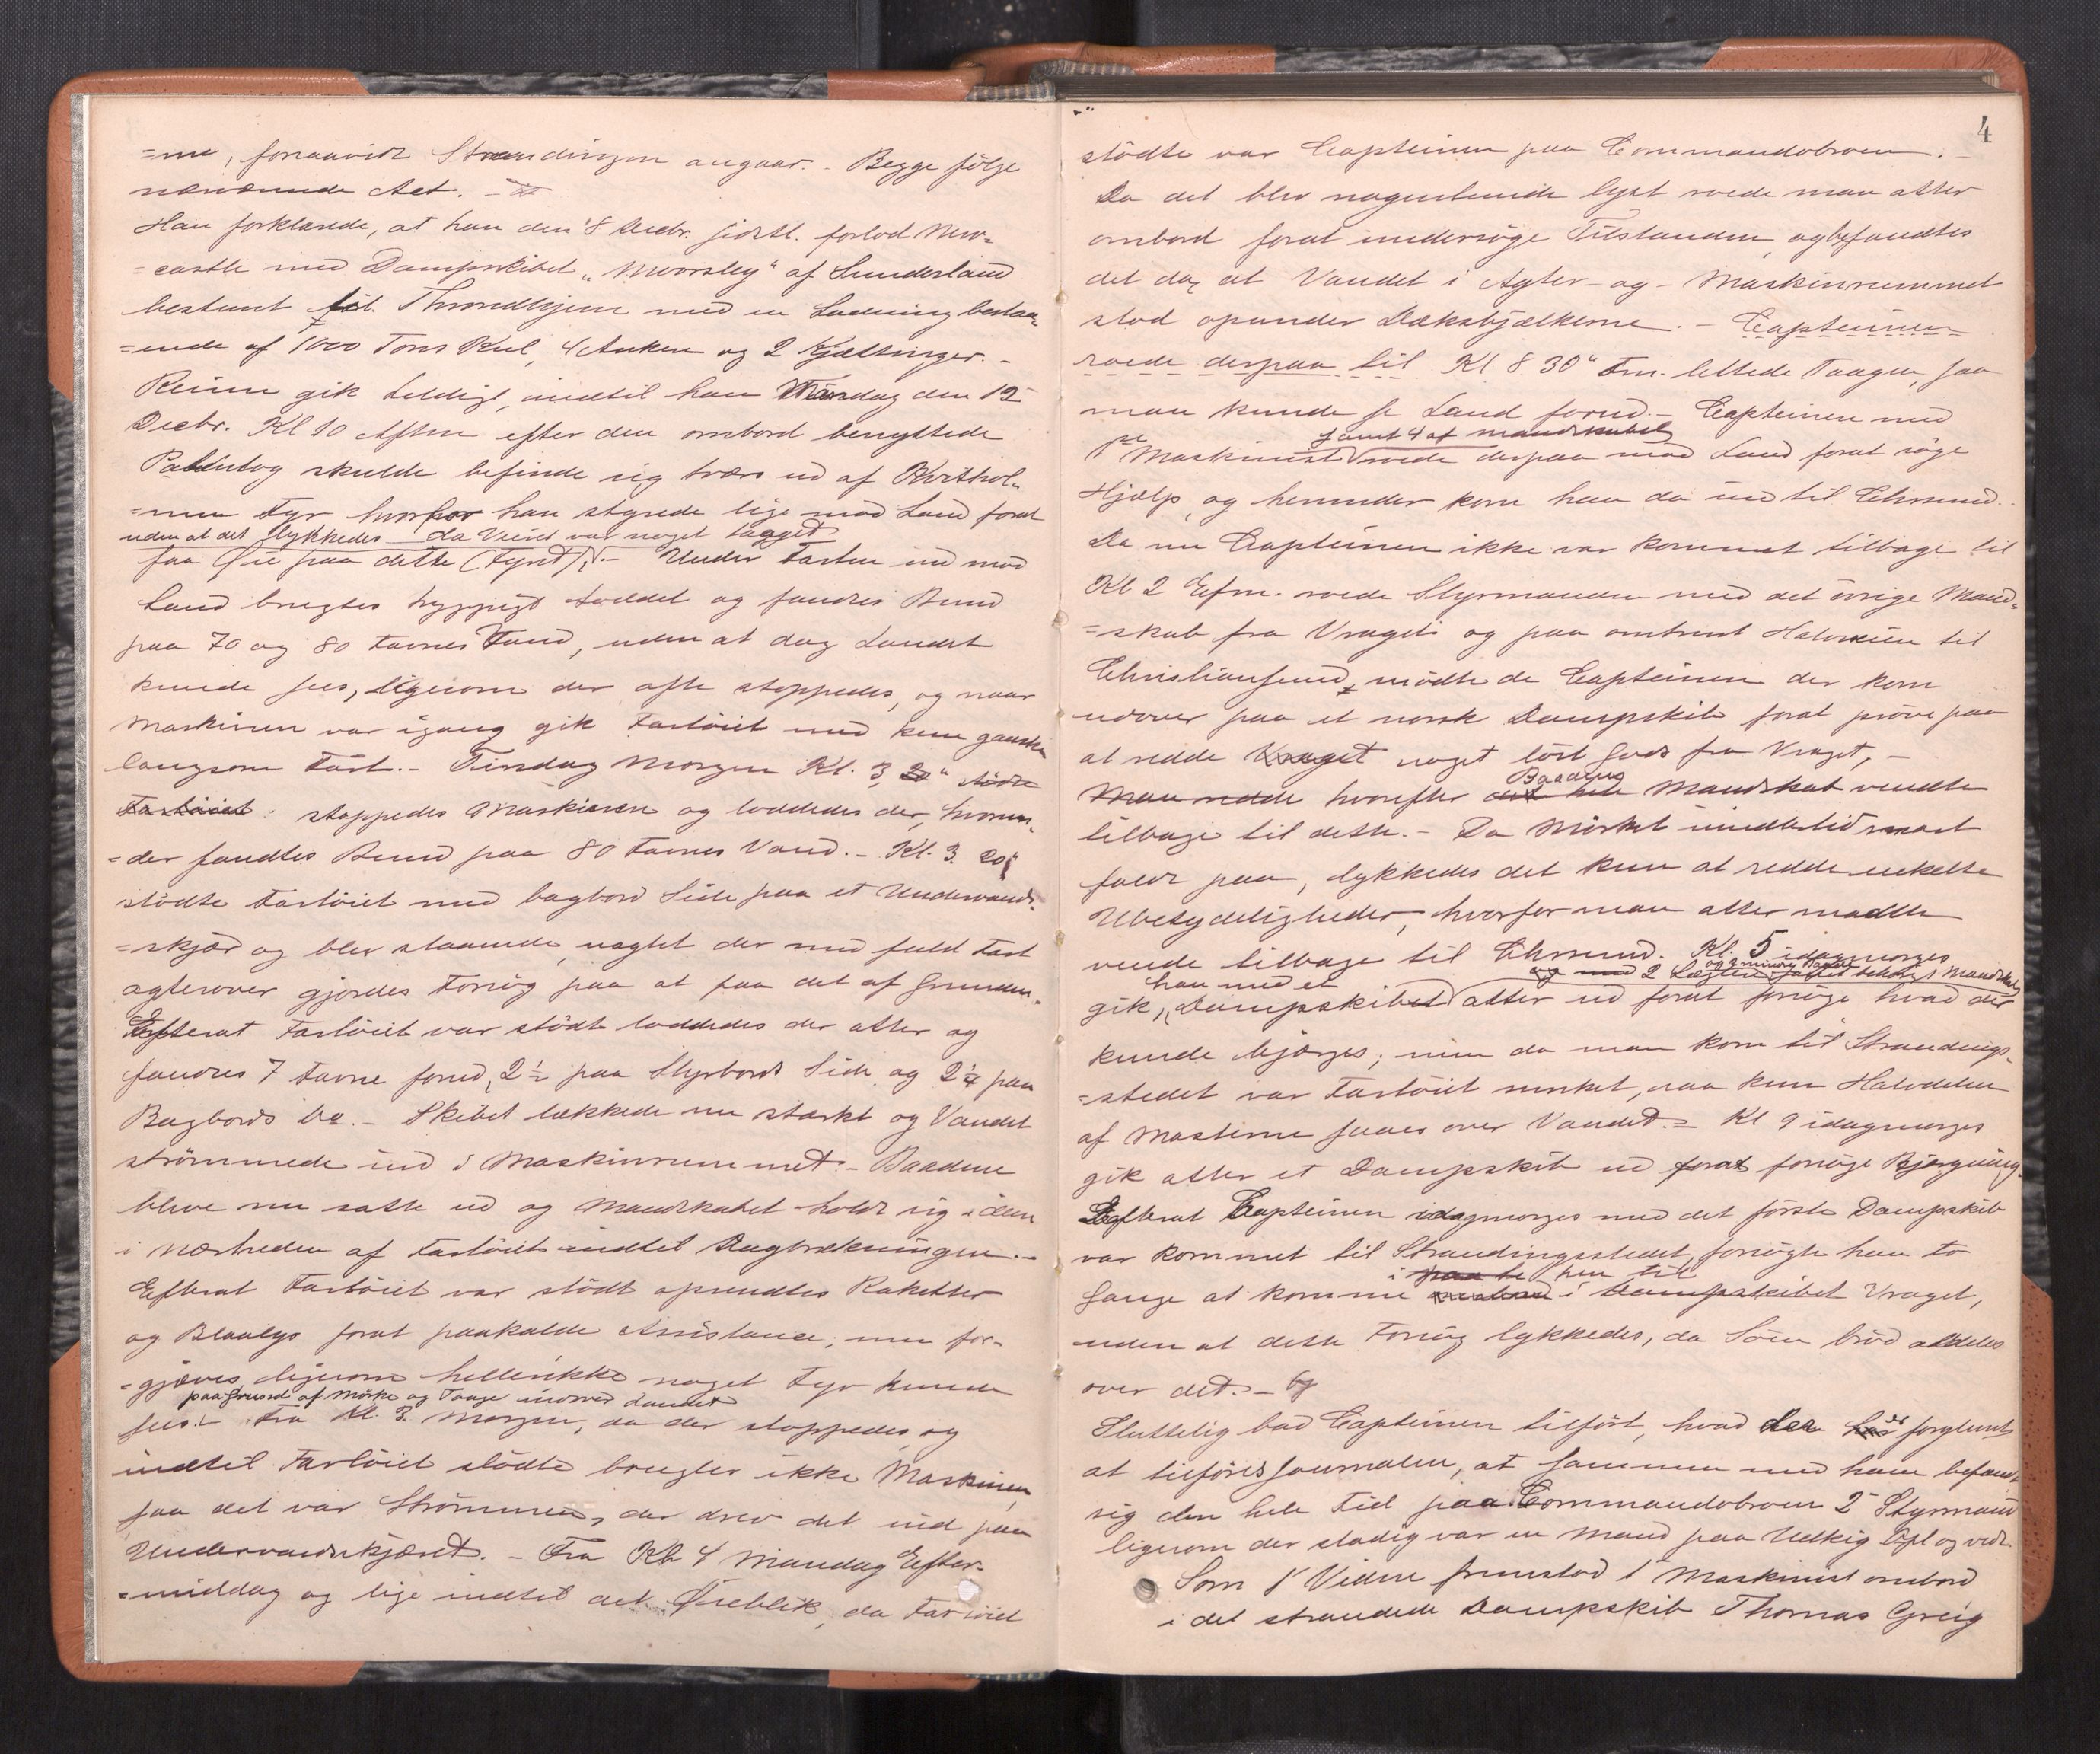 =me, forsaavidt Strandingen angaar. - Begge følge
nærværende Act. -
Han forklarede, at han den 8 Decbr. sidstl. forlod New-
=castle med Dampskibet „Moorsley" af Sunderland
bestemt til Throndhjem med en Ladning bestaa-
=ende af 1000 Tons Kul, 4 Ankere og 2 Kjættinger. -
Reisen gik heldigt, indtil han Mandag den 12
Decbr. Kl 10 Aften efter den ombord benyttede
Patentlog skulde befinde sig tværs ud af Kvithol-
=men Fyr hvorfor han styrede lige mod Land forat
uden at det lykkedes da Veiret var noget tagget
faa Øie paa dette (Fyret). - Under Farten ind mod
Land brugtes hyppigt Loddet og fandtes Bund
paa 70 og 80 Favnes Vand, uden at dog Landet
kunde sees, ligesom der ofte stoppedes, og naar
Maskinen var igang gik Fartöiet med kun ganske
langsom Fart. - Tirsdag Morgen Kl. 3, 20" stödte
Fartöiet stoppedes Maskinen og loddedes der, hvorun-
=der fandtes Bund paa 80 Favnes Vand. - Kl. 3. 20"
stödte Fartöiet med bagbord Side paa et Undervands-
=skjær og blev staaende, uagtet der med fuld Fart
agterover gjordes Forsög paa at faa det af Grunden.
Efterat Fartöiet var stödt loddedes der atter og
fandtes 7 Favne forud, 2½ paa Styrbords Side og 2¼ paa
Bagbords do. - Skibet lækkede nu stærkt og Vandet
strömmede ind i Maskinrummet. - Baadene
bleve nu satte ud og Mandskabet holdt sig i dem
i Nærheden af Fartöiet indtil Dagbrækningen. -
Efterat Fartöiet var stödt opsendtes Raketter
og Blaalys forat paakalde Assistance, men for-
=gjæves, ligesom hellerikke noget Fyr kunde
paa Grund af Mörke og Taage indover Landet
sees. - Fra Kl. 3. Morgen, da der stoppedes og
indtil Fartöiet stödte brugtes ikke Maskinen,
saa det var Strömmen, der drev det ind paa
Undervandsskjæret. - Fra Kl. 4 Mandag Efter-
=middag og lige indtil det Øieblik, da Fartöiet
4
stödte var Capteinen paa Commandobroen. -
Da det blev nogenlunde lyst roede man atter
ombord forat undersöge Tilstanden, og befandtes
det da, at Vandet i Agter- og - Maskinrummet
stod opunder Dæksbjælkerne. - Capteinen
roede derpaa til Kl 8 30" Fm. lettede Taagen, saa
man kunde se Land forud. - Capteinen med
samt 4 af Mandskabet
1ste Maskinist roede derpaa mod Land forat söge
Hjælp, og herunder kom han da ind til Chrsund.
Da nu Capteinen ikke var kommet tilbage til
Kl 2 Efm. roede Styrmanden med det övrige Mand-
=skab fra Vraget og paa omtrent Halvveien til
Christiansund, mödte de Capteinen der kom
udover paa et norsk Dampskib forat pröve paa
at redde Vraget noget löst Gods fra Vraget, -
Baadens
Man redde hvorefter det hele Mandskab vendte
tilbage til dette. - Da Mörket imidlertid snart
faldt paa, lykkedes det kun at redde enkelte
Ubetydeligheder, hvorfor man atter maatte
vende tilbage til Chrsund. Kl. 5 idagmorges
og med 2 Lægtere og 2 mindre Baade samt Mandskab
han med et
gik, Dampskibet atter ud forat forsöge hvad der
kunde bjærges; men da man kom til Strandings-
=stedet var Fartöiet sunket, saa kun Halvdelen
af Masterne saaes over Vandet. - Kl 9 idagmorges
gik atter et Dampskib ud forat forsöge Bjergning.
Efterat Capteinen idagmorges med det förste Dampskib
var kommet til Strandingsstedet, forsögte han to
i paa hen til
Gange at komme ombord i Dampskibet Vraget,
uden at dette Forsög lykkedes, da Söen bröd aldeles
over det. -
Sluttelig bad Capteinen tilfört, hvad der har er forglemt
at tilföres Journalen, at sammen med ham befandt
sig den hele Tid paa Commandobroen 2den Styrmand
ligesom der stadig var en Mand paa Udkig Opl og vedt.
Som 1ste Vidne fremstod 1ste Maskinist ombord
i det strandede Dampskib Thomas Greig